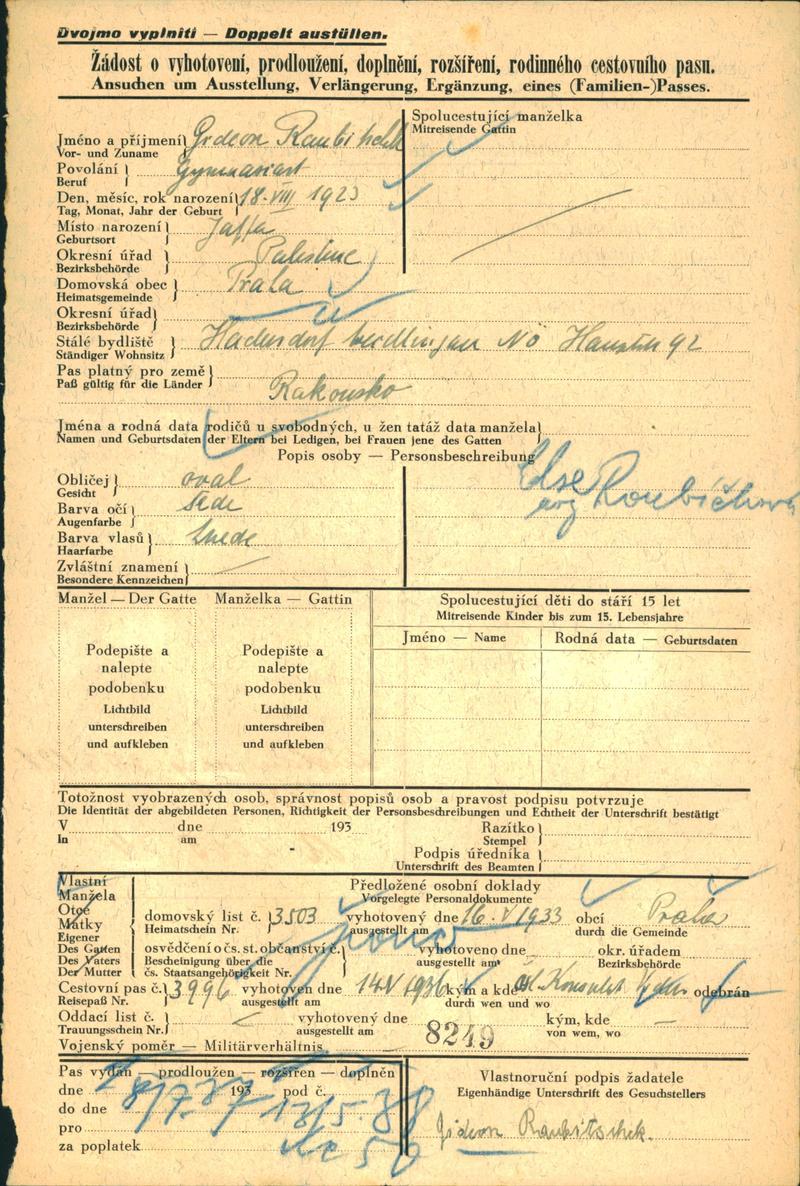 Dvojmo vyplniti — Doppelt austüllen.
Žádost o vyhotovení, prodloužení, doplnění, rozšíření, rodinného cestovního pasu.
Ansuchen um Ausstellung, Verlängerung, Ergänzung, eines (Familien-)Passes.
Spolucestující manželka
Mitreisende Gattin
Jméno a příjmení Gideon Raubitschek
Vor- und Zuname
Povolání Gymnasiast
Beruf
Den, měsíc, rok narození 18. VIII 1923
Tag, Monat, Jahr der Geburt
Místo narození Jaffa
Geburtsort
Okresní úřad Palestine
Bezirksbehörde
Domovská obec Praha
Heimatsgemeinde
Okresní úřad
Bezirksbehörde
Stálé bydliště Hadersdorf Weidlingau NÖ 92
Ständiger Wohnsitz
Pas platný pro země
Paß gültig für die Länder
Rakousko
Jména a rodná data rodičů u svobodných, u žen tatáž data manžela
Namen und Geburtsdaten der Eltern bei Ledigen, bei Frauen jene des Gatten
Popis osoby — Personsbeschreibung
Else
Roubíčková
Obličej oval
Gesicht
Barva očí šedé
Augenfarbe
Barva vlasů hnědé
Haarfarbe
Zvláštní znamení —
Besondere Kennzeichen
Manžel — Der Gatte Manželka — Gattin
Spolucestující děti do stáří 15 let
Mitreisende Kinder bis zum 15. Lebensjahre
Jméno — Name Rodná data — Geburtsdaten
Podepište a Podepište a
nalepte nalepte
podobenku podobenku
Lichtbild Lichtbild
unterschreiben unterschreiben
und aufkleben und aufkleben
Totožnost vyobrazených osob, správnost popisů osob a pravost podpisu potvrzuje
Die Identität der abgebildeten Personen, Richtigkeit der Personsbeschreibungen und Echtheit der Unterschrift bestätigt
V dne 193 Razítko
In am Stempel
Podpis úředníka
Unterschrift des Beamten
Vlastní
Manžela
Otce
Matky
Eigener
Des Gatten
Des Vaters
Der Mutter
Předložené osobní doklady
Vorgelegte Personaldokumente
domovský list č. 3503 vyhotovený dne 16. V 1933 obcí Praha
Heimatschein Nr. ausgestellt am durch die Gemeinde
osvědčení o čs. st. občanství č. vyhotoveno dne okr. úřadem
Bescheinigung über die ausgestellt am Bezirksbehörde
čs. Staatsangehörigkeit Nr.
Cestovní pas č. 3996 vyhotoven dne 14. V 1936 kým a kde čsl. Konsulát odebrán
Reisepaß Nr. ausgestellt am durch wen und wo
Oddací list č. — vyhotovený dne kým, kde —
Trauungsschein Nr. ausgestellt am von wem, wo
8249
Vojenský poměr — Militärverhältnis
Pas vydán — prodloužen — rozšířen — doplněn
dne 8/7 37 193 pod č.
do dne 13/5. 38
pro
za poplatek
Vlastnoruční podpis žadatele
Eigenhändige Unterschrift des Gesuchstellers
Gideon Raubitschek.